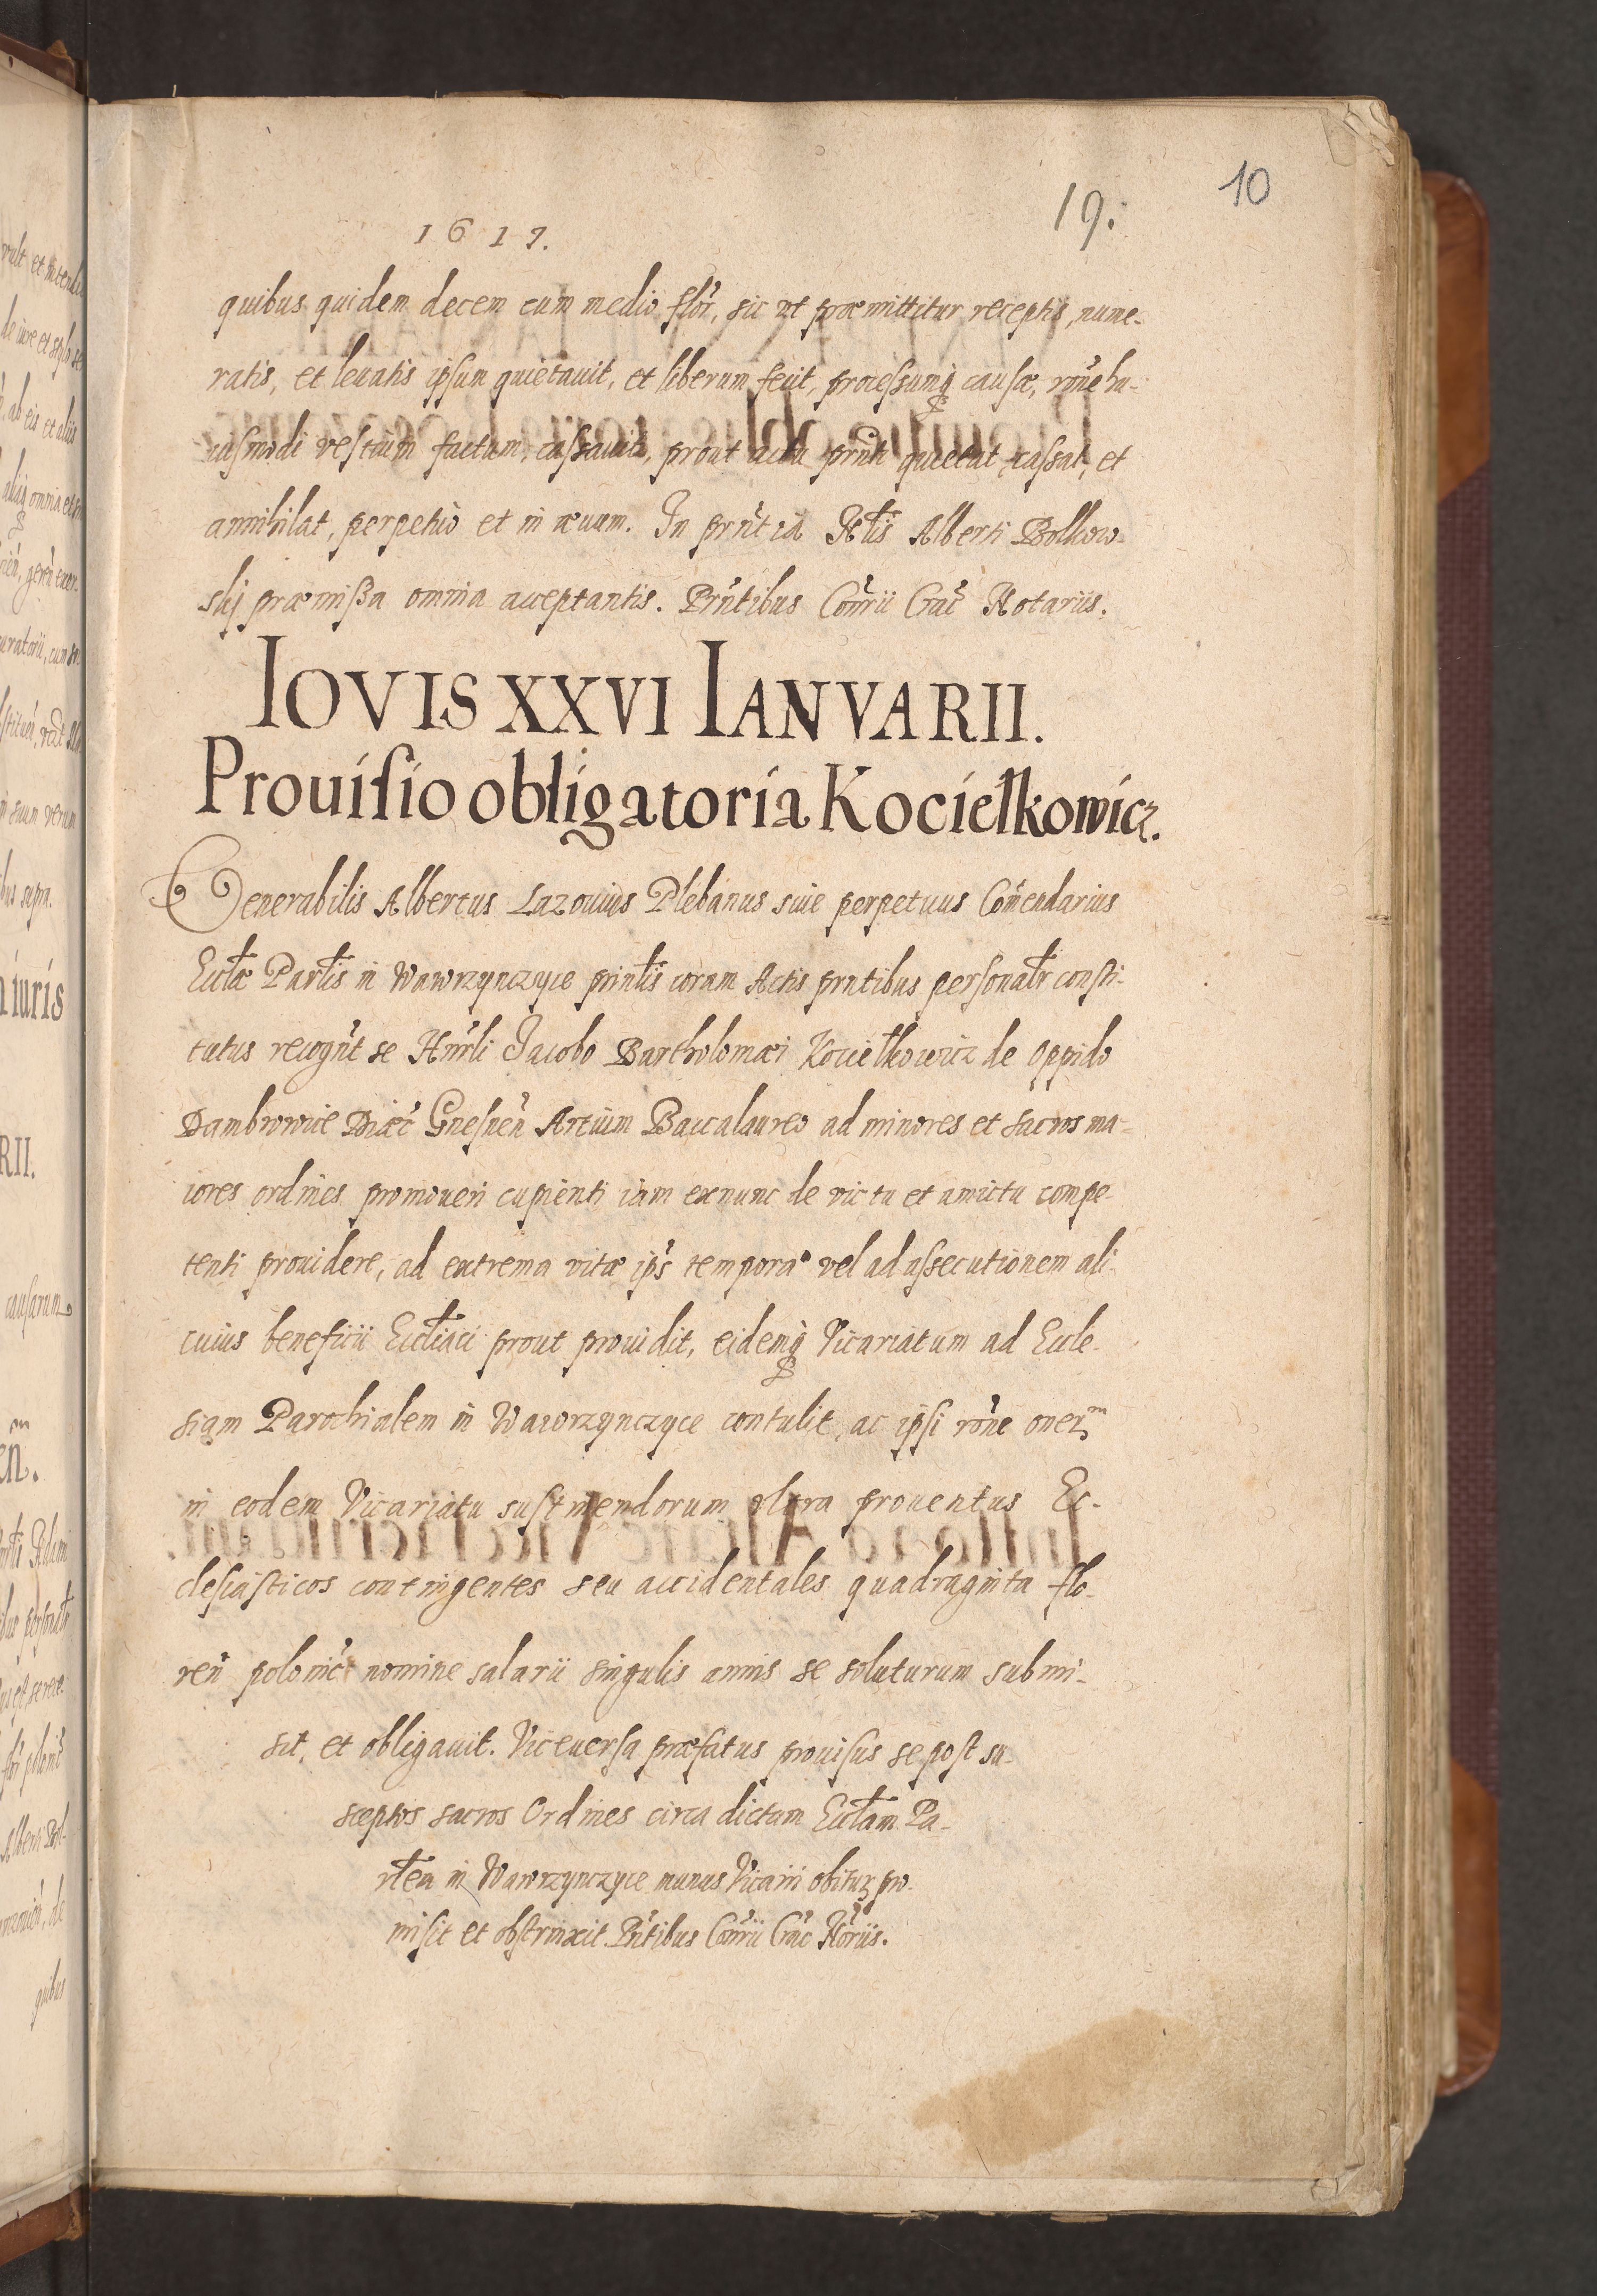 10
19.
1617.
quibus quidem decem cum medio flor̃, sic ut præmittitur receptis, nume-
ratis, et leuatis ipsum quietauit, et liberum fecit, processumq causæ, rõne hu-
iusmodi vestium factum, cassauit, prout actu prñti quietat, cassat, et
annihilat, perpetuò et in æuum. In prñtia Nłis Alberti Bolkow-
skj præmißa omnia acceptantis. Prñtibus Coñrii Crac̃ Notariis.
IOVIS XXVI IANVARII.
Prouisio obligatoria Kociełkowicz.
Venerabilis Albertus Lazouius Plebanus siue perpetuus Com̃endarius
Eccłæ Parłis in Wawrzynczyce prin̄tis coram Actis prntibus personałr consti-
tutus recogñt se Hnr̃li Jacobo Bartholomæi Kociełkowicz de Oppido
Dambrowice Diæc̃ Gnesneñ Artium Baccalaureo ad minores et sacros ma-
iores ordines promoueri cupienti iam exnunc de victu et amictu compe-
tenti prouidere, ad extrema vitæ ip̃s tempora vel ad assecutionem ali-
cuius beneficii Eccłiaci prout prouidit, eidemq Vicariatum ad Eccle-
siam Parochialem in Wawrzynczyce contulit, ac ipsi rõne oner̃
in eodem Vicariatu sustinendorum ultra prouentus Ec-
clesiasticos contingentes seu accidentales quadraginta flo-
reñ polonic̃ nomine salarii singulis annis se soluturum submi-
sit, et obligauit. Viceuersa præfatus prouisus se post su-
sceptos sacros Ordines circa dictam Eccłam Pa-
rłem in Wawrzynczyce munus Vicarii obitur̃ pro-
misit et obstrinxit. Pñtibus Coñrii Crac̃ Nõriis.